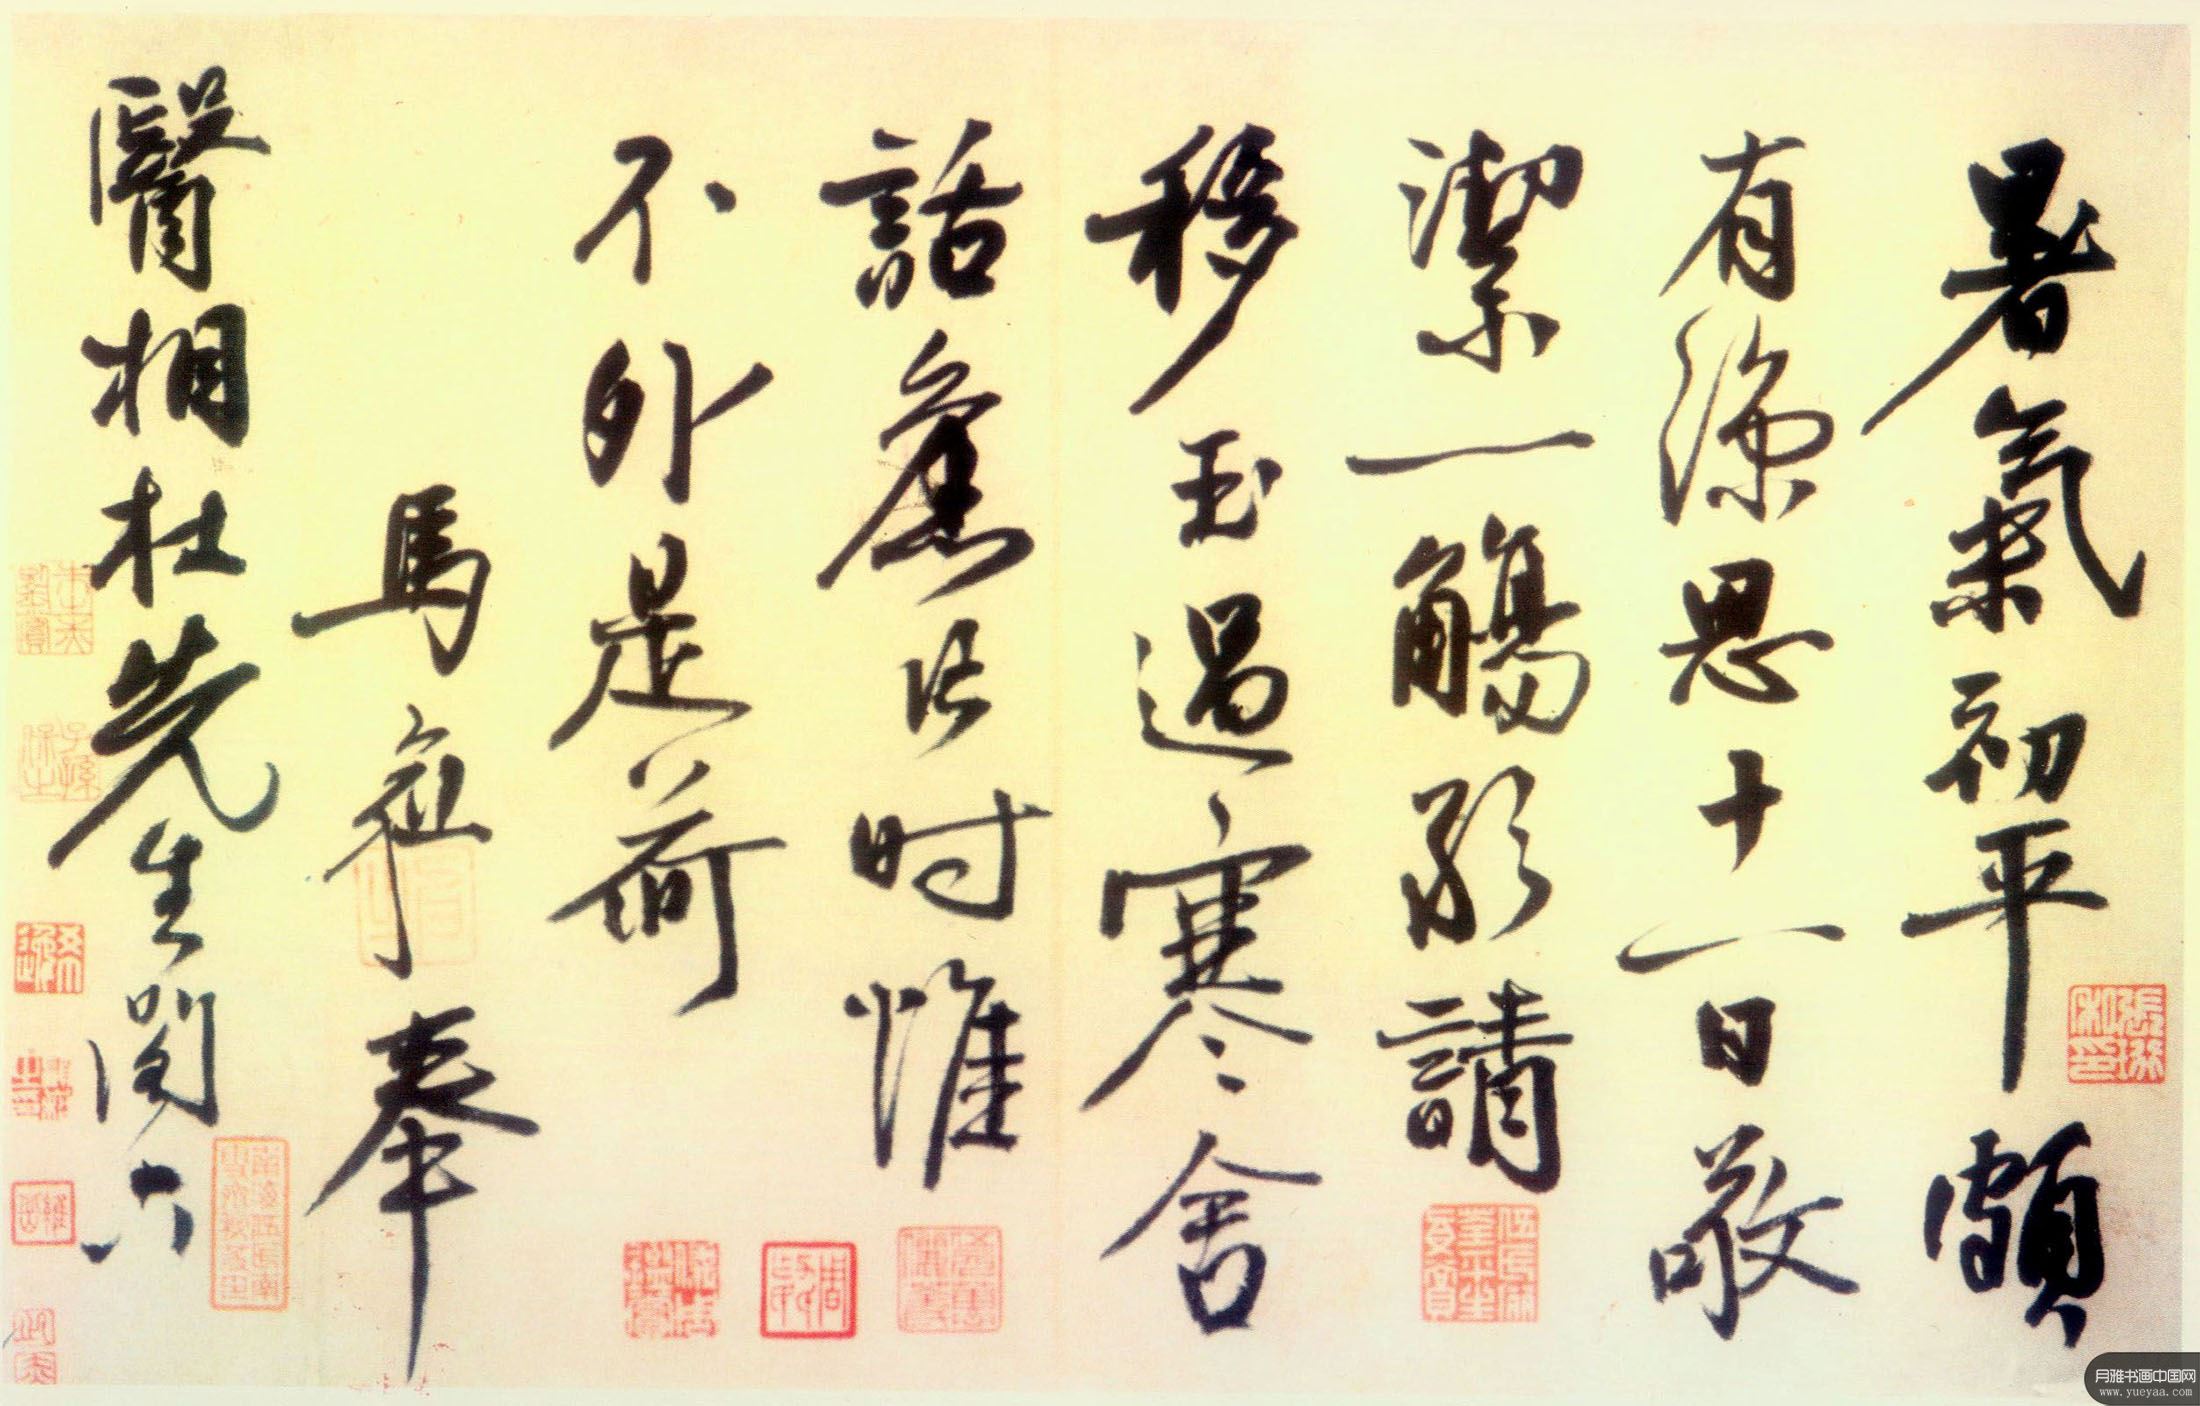 暑氣初平頗
有涼思十一日敬
潔一觴請
移玉過寒舍
話舊片時惟
不外是荷
馬奉
醫相杜先生閣下
張珩私印
月雅书画中国网
www.yueyaa.com